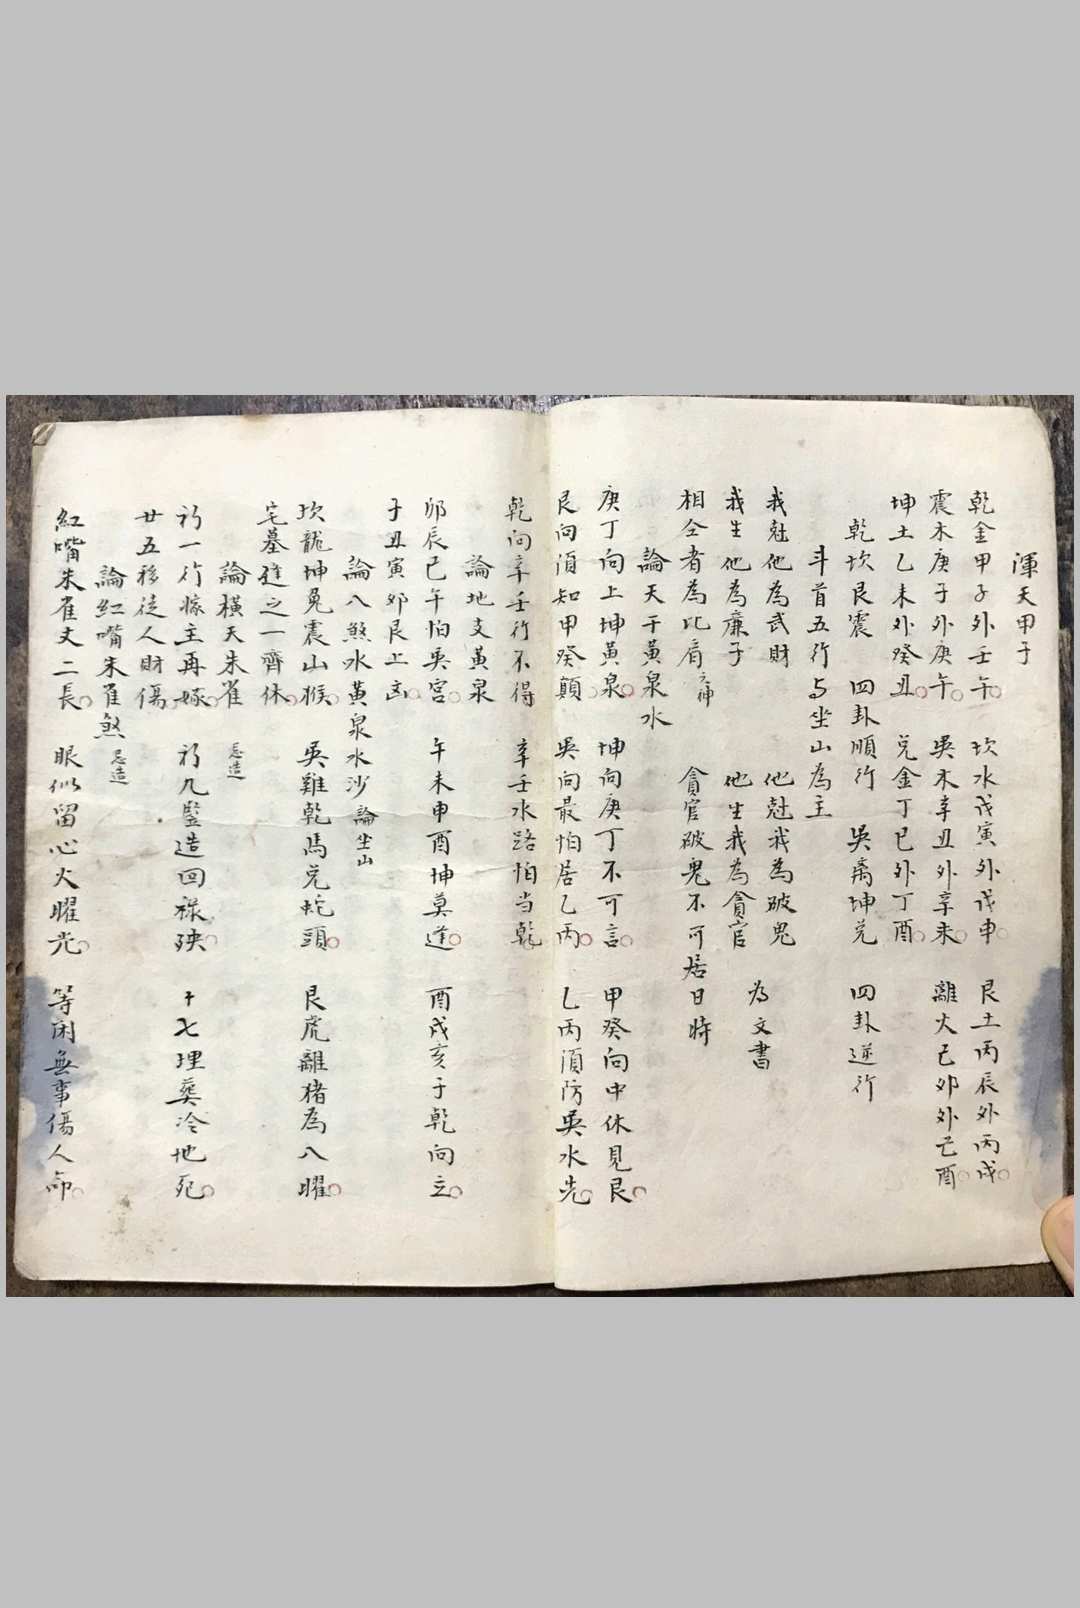 渾天甲子
乾金甲子外壬午 坎水戊寅外戊申 艮土丙辰外丙戌
震木庚子外庚午 巽木辛丑外辛未 離火己卯外己酉
坤土乙未外癸丑 兌金丁巳外丁酉
乾坎艮震 四卦順行 巽离坤兌 四卦逆行
斗首五行与坐山為主
我尅他為武財 他尅我為破鬼 為文書
我生他為廉子 他生我為貪官
相仝者為比肩之神 貪官破鬼不可居日時
論天干黃泉水
庚丁向上坤黃泉 坤向庚丁不可言 甲癸向中休見艮
艮向須知甲癸顛 巽向最怕居乙丙 乙丙須防巽水先
乾向辛壬行不得 辛壬水路怕当乾
論地支黃泉
卯辰巳午怕巽宮 午未申酉坤莫逢 酉戌亥子乾向立
子丑寅卯艮上凶
論八煞水黃泉水沙論坐山
坎龍坤兔震山猴 巽雞乾馬兌蛇頭 艮虎離猪為八曜
宅墓逢之一齊休
論橫天朱雀 忌造
初一行嫁主再嫁 初九竪造回祿殃 十七埋葬冷地死
廿五移徒人財傷
論紅嘴朱雀煞 忌造
紅嘴朱雀丈二長 眼似留心火曜光 等闲無事傷人命